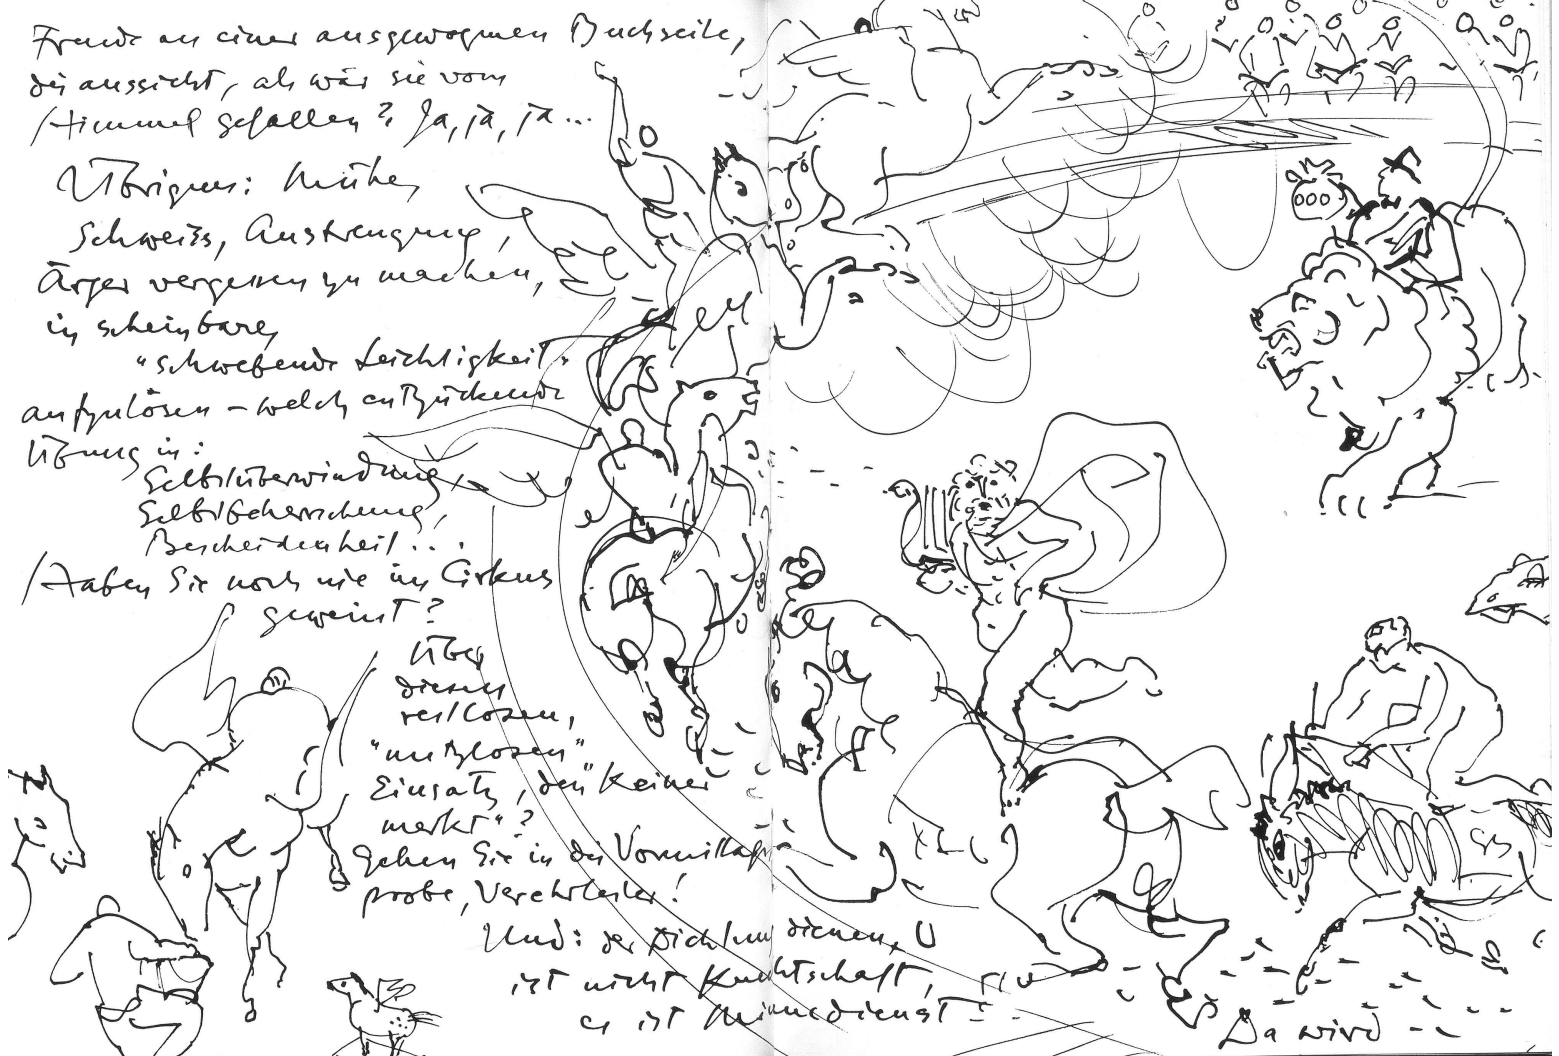 Freude an einer ausgewognen Buchseite,
die aussieht, als wär sie vom
Himmel gefallen? Ja, ja, ja...
Übrigens: Mühe,
Schweiss, Anstrengung,
Ärger vergessen zu machen,
in scheinbare,
"schwebende Leichtigkeit"
aufzulösen – welch entzückende
Übung in:
Selbstüberwindung,
Selbstbeherrschung,
Bescheidenheit...
Haben Sie noch nie im Cirkus
geweint?
Über
diesen
restlosen,
"nutzlosen"
Einsatz, den "Keiner
merkt"?
Gehen Sie in die Vormittags
probe, Verehrtester!
Und: der Dichtung dienen,
ist nicht Knechtschaft,
es ist Minnedienst!
Da wird --